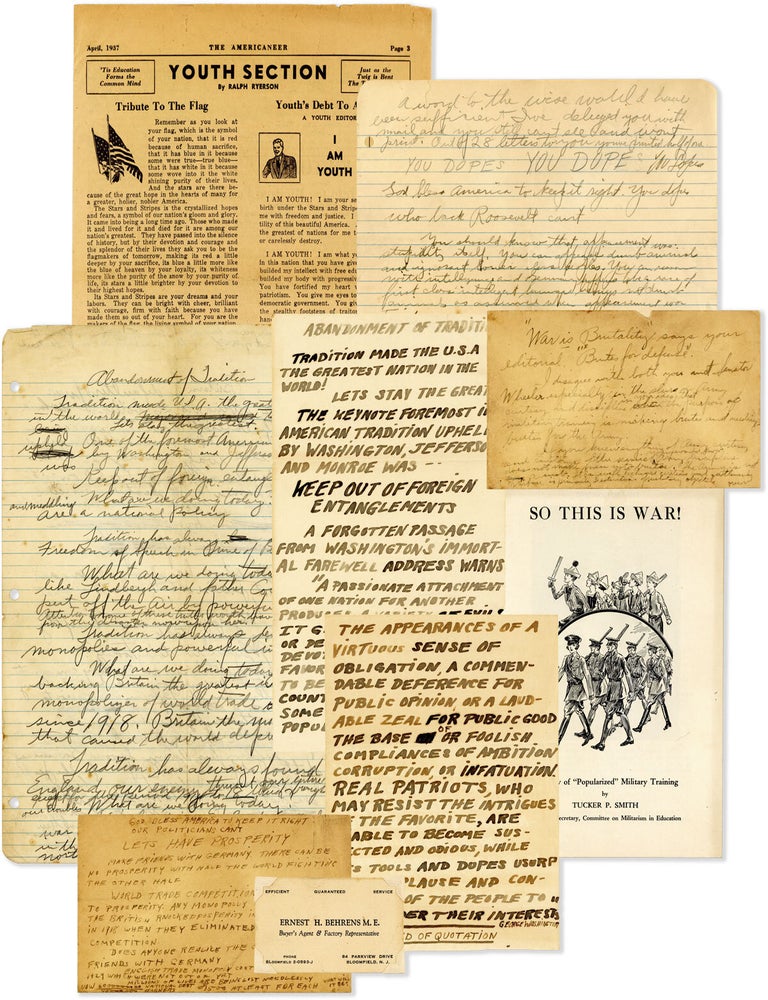 April, 1937 THE AMERICANEER Page 3
'Tis Education
Forms the
Common Mind
YOUTH SECTION
By RALPH RYERSON
Just as the
Twig is Bent
The
Tribute To The Flag
Remember as you look at
your flag, which is the symbol
of your nation, that it is red
because of human sacrifice,
that it has blue in it because
some were true—true blue—
that it has white in it because
some wove into it the white
shining purity of their lives.
And the stars are there be-
cause of the great hope in the hearts of many for
a greater, holier, nobler America.
The Stars and Stripes is the crystallized hopes
and fears, a symbol of our nation's gloom and glory.
It came into being a long time ago. Those who made
it and lived for it and died for it are among our
nation's greatest. They have passed into the silence
of history, but by their devotion and courage and
the splendor of their lives they ask you to be the
flagmakers of tomorrow, making its red a little
deeper by your sacrifice, its blue a little more like
the blue of heaven by your loyalty, its whiteness
more like the purity of the snow by your purity of
life, its stars a little brighter by your devotion to
their highest hopes.
Its Stars and Stripes are your dreams and your
labors. They can be bright with cheer, brilliant
with courage, firm with faith because you have
made them so out of your heart. For you are the
makers of the flag, the living symbol of your nation
Youth's Debt To A
A YOUTH EDITOR
I
AM
YOUTH
I AM YOUTH! I am your se
birth under the Stars and Stripe
me with freedom and justice. I
tility of this beautiful America.
the greatest of nations for me t
or carelessly destroy.
I AM YOUTH! I am what y
in this nation that you have giv
builded my intellect with free ed
builded my body with progressiv
You have fortified my heart w
patriotism. You give me eyes to
democratic government. You gi
the stealthy footsteps of traito
a word to the wise would have
been sufficient I've deluged you with
mail and you still can't see and wont
print. Out of 28 letters to you you printed half of one
YOU DOPES YOU DOPES
God bless America to keep it right. You dopes
who back Roosevelt cant
You should know that appeasement was
stupidity itself.
"War is Brutality" says your
editorial "Brute for defense".
I disagree with both you and Senator
Wheeler
Abandonment of Tradition
Tradition made U.S.A. the great
in the world
Lets stay the greatest.
One of the foremost American
by Washington and Jeffers
was
Keep out of foreign entangle
and meddling What are we doing today?
are a national policy
Tradition has always
Freedom of Speech in time of P
What are we doing toda
like Lindbergh and Father Co
part off the air by powerfu
Tradition has always de
monopolies and powerful i
What are we doing today
backing Britain the greatest
monopolizer of world trade
since 1918. Britain the
that caused the world depr
Tradition has always found
England our enemy
What are we doing today.
war
in th
ABANDONMENT OF TRADITI
TRADITION MADE THE U.S.A
THE GREATEST NATION IN THE
WORLD!
LETS STAY THE GREAT
THE KEYNOTE FOREMOST I
AMERICAN TRADITION UPHEL
BY WASHINGTON, JEFFERSO
AND MONROE WAS --
KEEP OUT OF FOREIGN
ENTANGLEMENTS
A FORGOTTEN PASSAGE
FROM WASHINGTON'S IMMORT-
AL FAREWELL ADDRESS WARNS
"A PASSIONATE ATTACHMENT
OF ONE NATION FOR ANOTHER
PRODUCES A VARIETY OF EVILS
IT G
OR DE
DEVOT
FAVOR
TO BE
COUNT
SOME
POPUL
THE APPEARANCES OF A
VIRTUOUS SENSE OF
OBLIGATION, A COMMEN-
DABLE DEFERENCE FOR
PUBLIC OPINION, OR A LAUD-
ABLE ZEAL FOR PUBLIC GOOD
THE BASE OF OR FOOLISH
COMPLIANCES OF AMBITION
CORRUPTION, OR INFATUATION.
REAL PATRIOTS, WHO
MAY RESIST THE INTRIGUES
OF THE FAVORITE, ARE
ABLE TO BECOME SUS-
ECTED AND ODIOUS, WHILE
S TOOLS AND DOPES USURP
PLAUSE AND CON-
OF THE PEOPLE TO
DER THEIR INTERESTS
GEORGE WASHINGTON
D OF QUOTATION
SO THIS IS WAR!
y of "Popularized" Military Training
by
TUCKER P. SMITH
Secretary, Committee on Militarism in Education
GOD BLESS AMERICA TO KEEP IT RIGHT
OUR POLITICIANS CANT
LETS HAVE PROSPERITY
MAKE FRIENDS WITH GERMANY THERE CAN BE
NO PROSPERITY WITH HALF THE WORLD FIGHTING
THE OTHER HALF
WORLD TRADE COMPETITION
TO PROSPERITY. ANY MONOPOLY
THE BRITISH KNOCKED PROSPERITY
IN 1918 WHEN THEY ELIMINATED
COMPETITION
DOES ANYONE REALIZE THE
FRIENDS WITH GERMANY
ENGLISH TRADE MONOPOLY COST
1929 WHICH WERE NOT OUT OF YET
MILLIONS OF LIVES ARE BEING LOST NEEDLESSLY
EFFICIENT GUARANTEED SERVICE
ERNEST H. BEHRENS M. E.
Buyer's Agent & Factory Representative
PHONE
BLOOMFIELD 2-0993-J
84 PARKVIEW DRIVE
BLOOMFIELD, N. J.